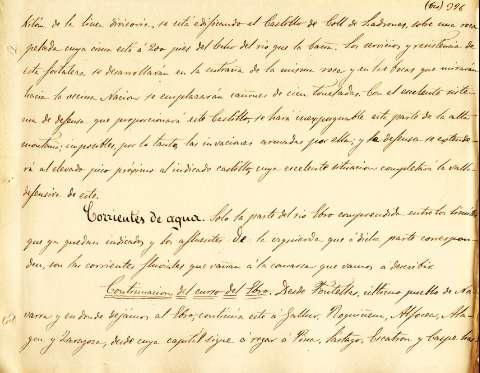 (610) 326
kilóm de la linea divisoria, se está edificando el Castillo de Coll de Ladrones, sobre una roca
pelada cuya cima está á 200 piés del lecho del rio que la baña. Los servicios y resistencia de
esta fortaleza se desarrollarán en la entraña de la misma roca, y en las bocas que mirarán
hácia la vecina Nacion se emplazarán cañones de cien toneladas. Con el excelente siste-
ma de defensa que proporcionará este Castillo, se hará inexpugnable esta parte de la alti
montaña, imposibles, por lo tanto, las invasiones armadas por ella; y la defensa se extende-
rá al elevado pico próximo al indicado castillo, cuya excelente situacion completará la valla
defensiva de este.
Corrientes de agua. Solo la parte del rio Ebro comprendida entre los límites
que ya quedan indicados y los afluentes de la izquierda que á dicha parte correspon-
den, son las corrientes fluviales que bañan á la comarca que vamos á describir.
Continuacion del curso del Ebro. Desde Fontellas, último pueblo de Na-
varra y en donde dejámos al Ebro, continúa este á Gallur, Boquiñeni, Alfocea, Ala-
gon y Zaragoza, desde cuya capital sigue a regar á Pina, Sástago, Escatron y Caspe